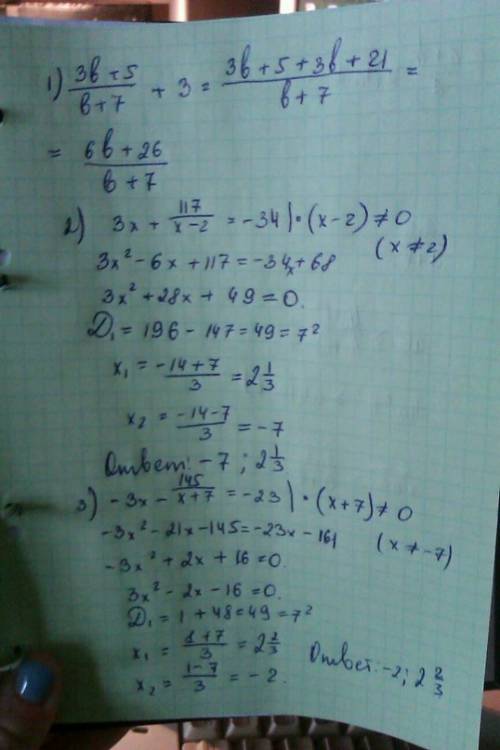 1) (3b+5)/(b+7) + 3 = (3b+5+3b+21)/(b+7) =
= (6b+26)/(b+7)
2) 3x + 117/(x-2) = -34 | · (x-2) ≠ 0
(x ≠ 2)
3x² - 6x + 117 = -34x + 68
3x² + 28x + 49 = 0.
D₁ = 196 - 147 = 49 = 7²
x₁ = (-14+7)/3 = 2 1/3
x₂ = (-14-7)/3 = -7
Ответ: -7 ; 2 1/3
3) -3x - 145/(x+7) = -23 | · (x+7) ≠ 0
(x ≠ -7)
-3x² - 21x - 145 = -23x - 161
-3x² + 2x + 16 = 0.
3x² - 2x - 16 = 0.
D₁ = 1 + 48 = 49 = 7²
x₁ = (1+7)/3 = 2 2/3
x₂ = (1-7)/3 = -2.
Ответ: -2; 2 2/3